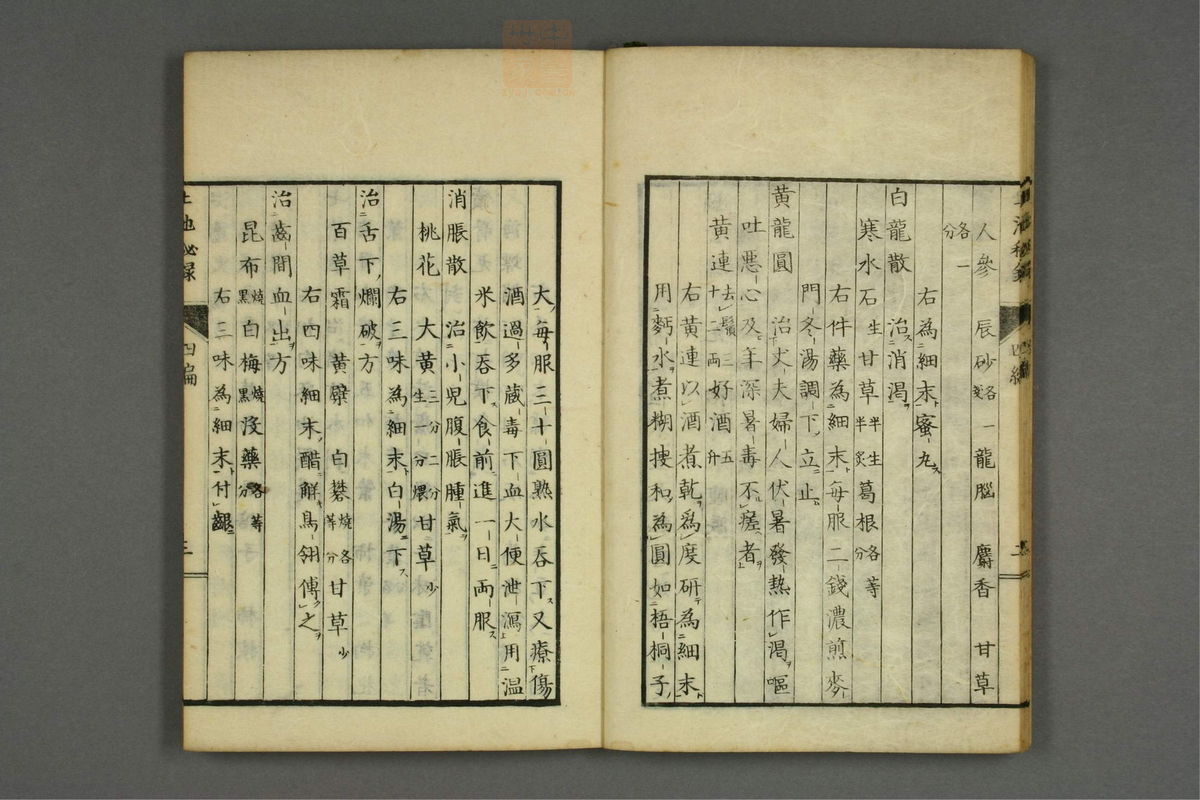 人參　辰砂各一錢　龍腦　麝香　甘草
各一分
右為細末蜜丸
白龍散　治消渴
寒水石生　甘草半生半炙　葛根各等分
右件藥為細末每服二錢濃煎麥
門冬湯調下立止
黃龍圓　治丈夫婦人伏暑發熱作渴嘔
吐惡心及年深暑毒不瘥者
黃連去鬚三十二兩　好酒五升
右黃連以酒煮乾為度研為細末
用麪水煮糊搜和為圓如梧桐子
大每服三十圓熟水吞下又療傷
酒過多藏毒下血大便泄瀉用溫
米飲吞下食前進一日兩服
消脹散　治小兒腹脹腫氣
桃花　大黃三分生一分二分煨　甘草少
右三味為細末白湯下
治舌下爛破方
百草霜　黃檗　白礬燒各等分　甘草少
右四味細末醋解鳥翎傅之
治齒間血出方
昆布燒黑　白梅燒黑　沒藥各等分
右三味為細末付齦
四編
三
四編
二